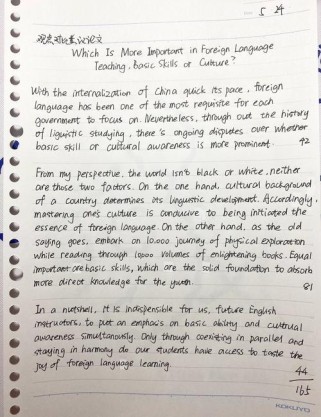 5 24
观点对比类议论文
Which Is More Important in Foreign Language
Teaching, Basic Skills or Culture?
With the internalization of China quick its pace, foreign
language has been one of the most requisite for each
government to focus on. Nevertheless, through out the history
of liguistic studying, there's ongoing disputes over whether
basic skill or cultural awareness is more prominent. 42
From my perspective, the world isn't black or white, neither
are those two factors. On the one hand, cultural background
of a country determines its linguistic development. Accordingly,
mastering one's culture is conducive to being initiated the
essence of foreign language. On the other hand, as the old
saying goes, embark on 10,000 journey of physical exploration
while reading through 10,000 volumes of enlightening books. Equal
important are basic skills, which are the solid foundation to absorb
more direct knowledge for the youth. 81
In a nutshell, it is indispensible for us, future English
instructors, to put an emphasis on basic ability and cultural
awareness simultanously. Only through coexisting in parallel and
staying in harmony do our students have access to taste the
joy of foreign language learning. 44
165
KOKUYO